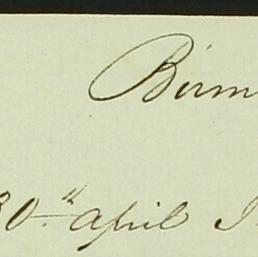 Birm
30th april I